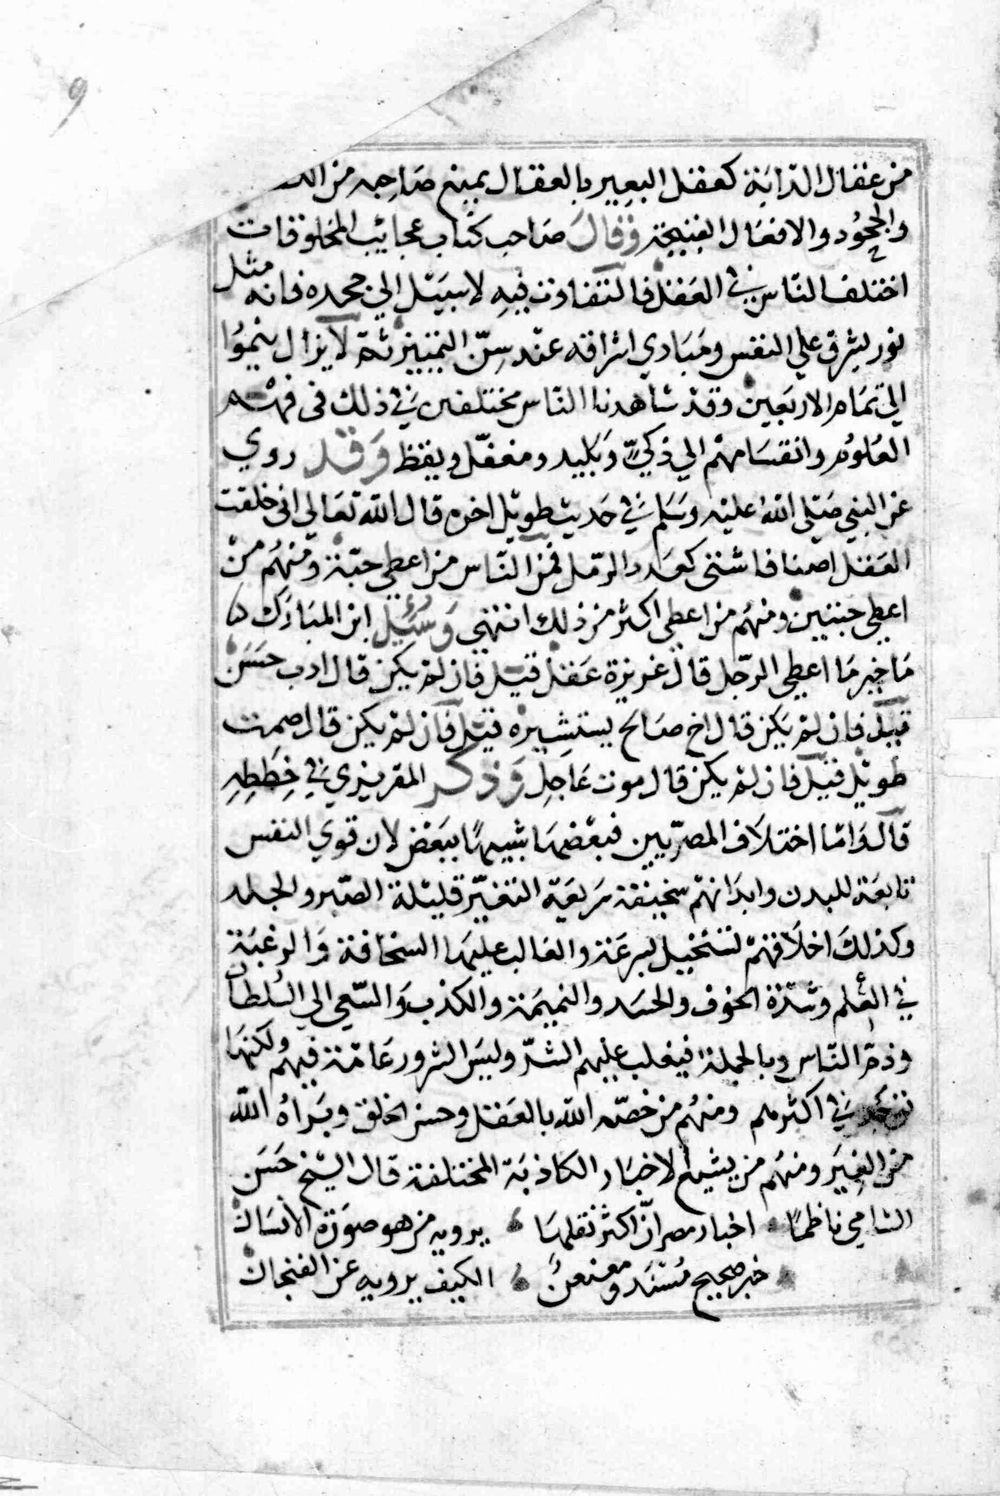 9
من عقال الدابة كعقل البعير بالعقال يمنع صاحبه من
والجحود والافعال القبيحة وقال صاحب كتاب عجايب المخلوقات
اختلف الناس في العقل فالتفاوت فيه لا سبيل الي جحده فانه مثل
نور يشرق علي النفس ومبادي اشراقه عند سن التمييز ثم لا يزال ينموا
الي تمام الاربعين وقد شاهدنا الناس مختلفين في ذلك في فهم
العلوم وانقسامهم الي ذكي وبليد ومغفل ويقظ وقد روي
عن النبي صلى الله عليه وسلم في حديث طويل اخره قال الله تعالي اني خلقت
العقل اصنافا شتي كعدد الرمل فمن الناس من اعطي حبة ومنهم من
اعطي حبتين ومنهم من اعطي اكثر من ذلك انتهي وسئل ابن المبارك
ما خير ما اعطي الرجل قال غريزة عقل قيل فان لم يكن قال ادب حسن
قيل فان لم يكن قال اخ صالح يستشيره قيل فان لم يكن قال صمت
طويل قيل فان لم يكن قال موت عاجل وذكر المقريزي في خططه
قال واما اختلاف المصريين فبعضها شبيها ببعض لان قوي النفس
تابعة للبدن وابدانهم سخيفة سريعة التغير قليلة الصبر والجلد
وكذلك اخلاقهم تستحيل بسرعة والغالب عليها السخافة والرغبة
في العلم وشدة الخوف والحسد والنميمة والكذب والسعي الي السلطان
وذم الناس وبالجملة فيغلب عليهم الشر وليس الشرور عامة فيهم ولكنها
توجد في اكثرهم ومنهم من خصه الله بالعقل وحسن الخلق وبراه الله
من الغير ومنهم من يشيع الاخبار الكاذبة المختلفة قال الشيخ حسن
الشامي ناظما اخبار مصر ان اكثر نقلها يرويه من هو صورة الانسان
خبر صحيح مسند ومعنعن الكيف يرويه عن الفنجان